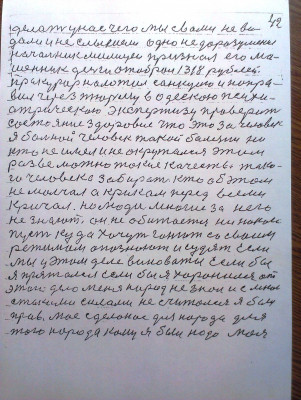 42
сделат у нас чего мы с вами не ви
дали и не слышали одно недоразумения
начальник милиции признал его мо
шенник деньги отобрал 1318 рублей
прокурор наложил санкцию и отпра
вил через тюрму в одескою психи
атрическою экспертизу проверит
состояние здоровия что это за человек
я больной человек такой болезни ни
кто не имел и не окружался этом
разве можно такие качества тако
го человека забират кто об этом
не молчал а криком перед всеми
кричал. но люди многие за него
не знают. он не обитается ни накого
пуст куда хочут гонют со своим
режимам опознают и судят если
мы у этом деле виноваты если бы
я прятался если бы я хоронился от
этого дело меня народ не знал и с мной
стыми силами не считался я был
прав. мое сделаное для народа для
того народа кому я был надо моя